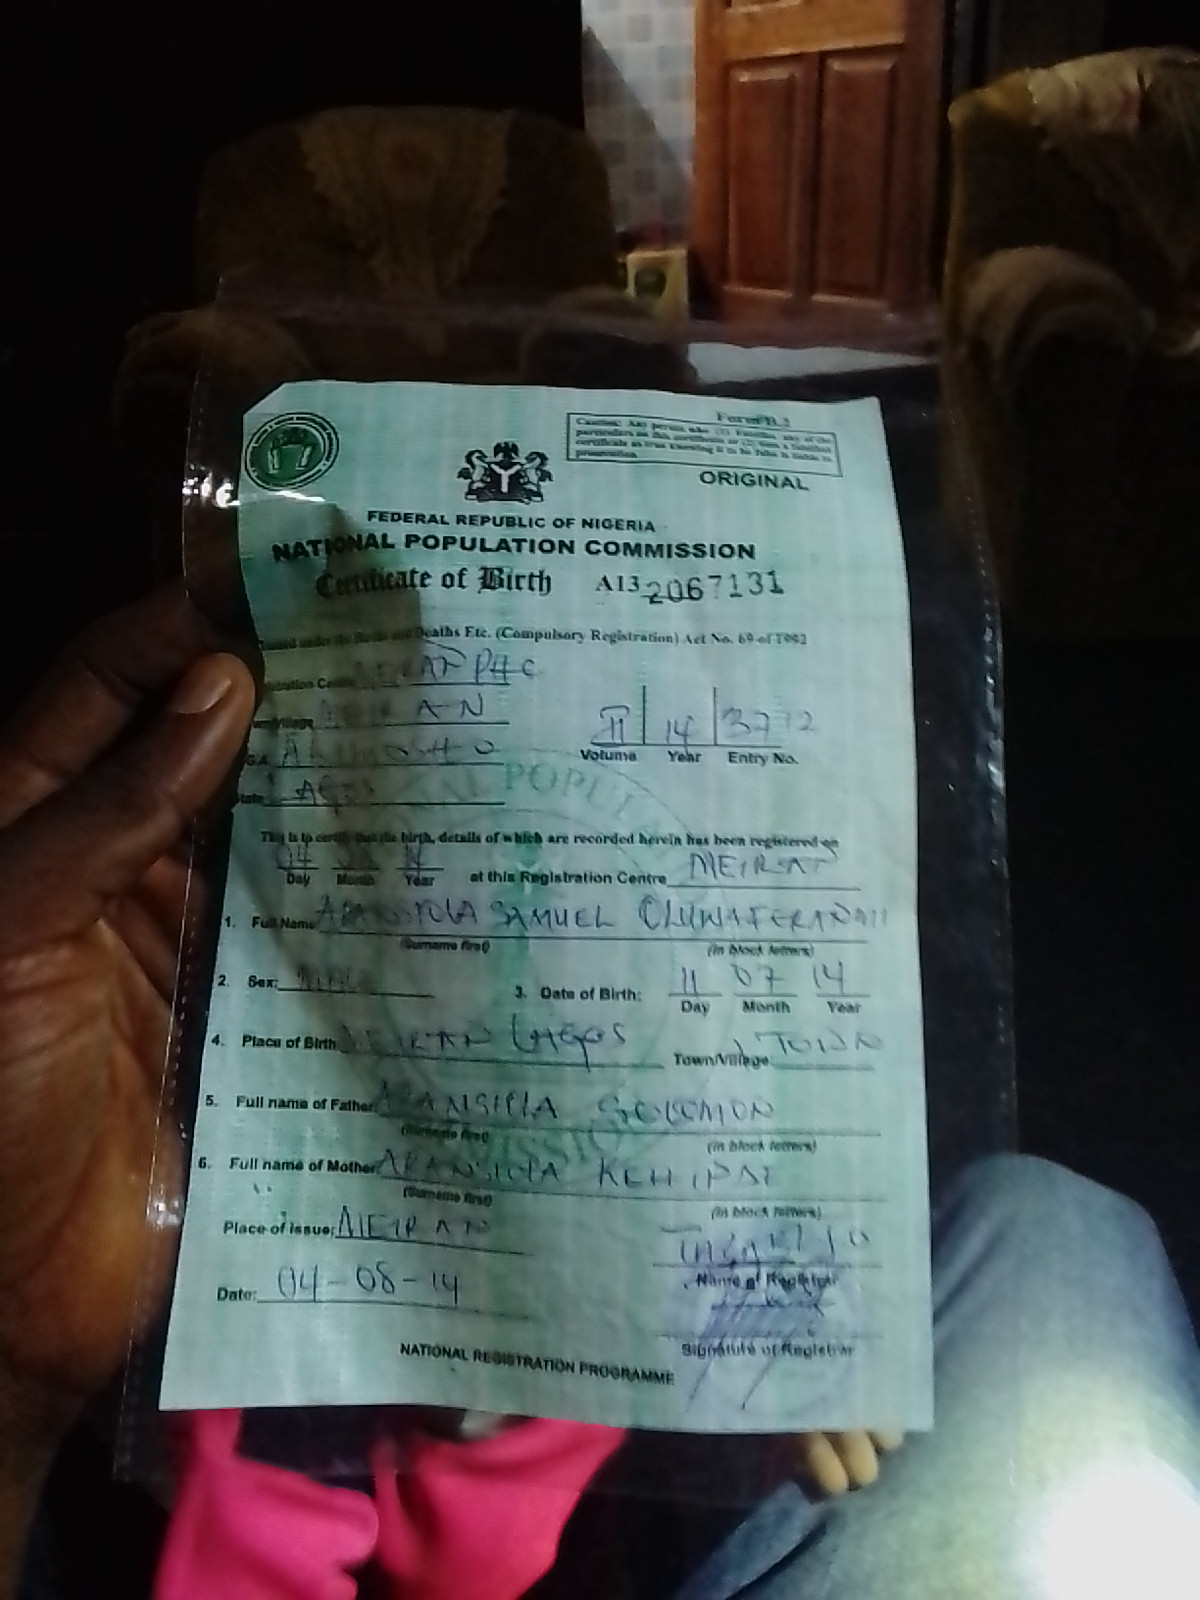 Form B.2
Caution: Any person who (1) falsifies any of the
particulars on this certificate or (2) uses a falsified
certificate as true knowing it to be false is liable to
prosecution
ORIGINAL
FEDERAL REPUBLIC OF NIGERIA
NATIONAL POPULATION COMMISSION
Certificate of Birth A13 2067131
Issued under the Births and Deaths Etc. (Compulsory Registration) Act No. 69 of 1992
Registration Centre PHC
Town/Village
L.G.A. ALIMOSHO
State LAGOS
II 14 3772
Volume Year Entry No.
This is to certify that the birth, details of which are recorded herein has been registered on
04 08 14
Day Month Year at this Registration Centre MEIRAN
1. Full Name SAMUEL
(Surname first) (in block letters)
2. Sex: MALE 3. Date of Birth: 11 07 14
Day Month Year
4. Place of Birth MEIRAN LAGOS Town/Village: TOWN
5. Full name of Father SOLOMON
(Surname first) (in block letters)
6. Full name of Mother
(Surname first) (in block letters)
Place of issue: MEIRAN
Name of Registrar
Date: 04-08-14
Signature of Registrar
NATIONAL REGISTRATION PROGRAMME